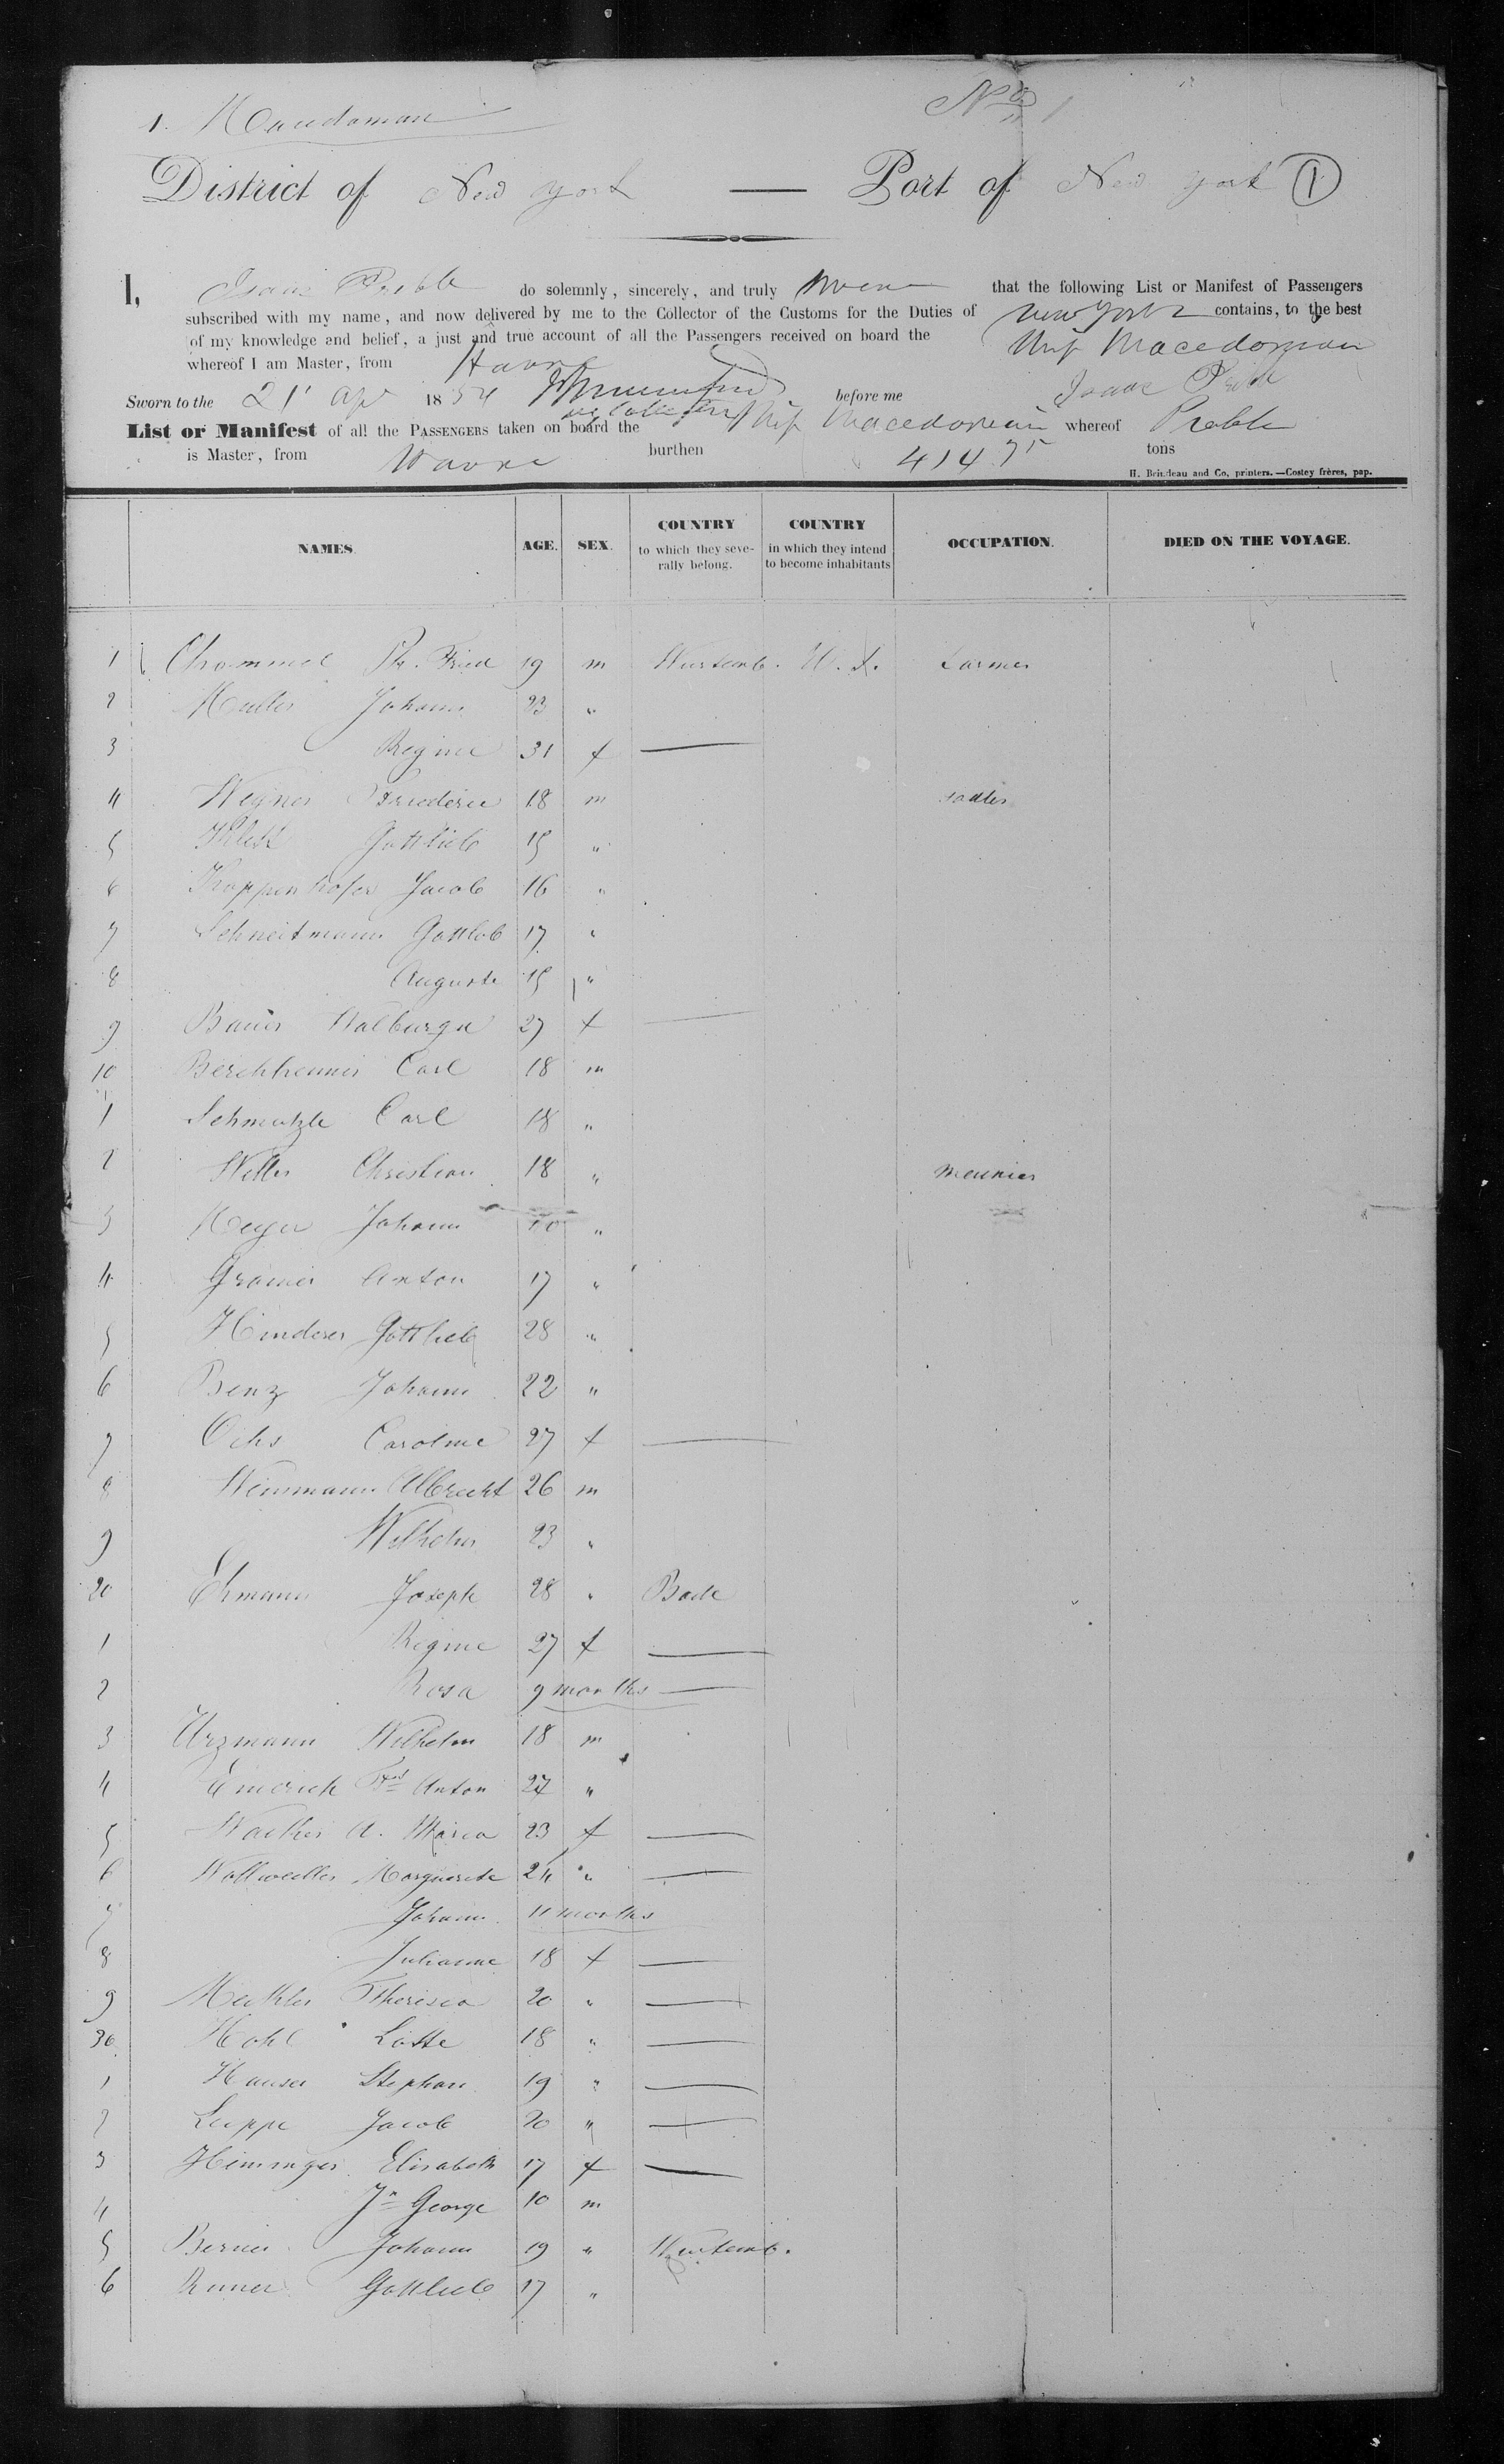 1. Macedonian
No 1
District of New York — Port of New York 1
I, Isaac Preble do solemnly, sincerely, and truly swear that the following List or Manifest of Passengers
subscribed with my name, and now delivered by me to the Collector of the Customs for the Duties of New York contains, to the best
of my knowledge and belief, a just and true account of all the Passengers received on board the Ship Macedonian
whereof I am Master, from Havre
Isaac Preble
Sworn to the 21 Apr 1854 before me
List or Manifest of all the PASSENGERS taken on board the Ship Macedonian whereof Preble
is Master, from Havre burthen 414 75 tons
H. Brindeau and Co, printers. — Costey frères, pap.
NAMES. AGE. SEX. COUNTRY to which they severally belong. COUNTRY in which they intend to become inhabitants OCCUPATION. DIED ON THE VOYAGE.
1 Fried 19 m Wurtemb. U. S. Farmer
2 Muller Johann 23 "
3 Regine 31 f
4 Wegner Friederic 18 m sadler
5 Gottlieb 15 "
6 Koppenhofer Jacob 16 "
7 Schneitmann Gottlob 17 "
8 Auguste 15 "
9 Bauer Walburga 27 f
10 Berchheimer Carl 18 m
1 Schmatzle Carl 18 "
2 Weller Christian 18 " meunier
3 Meyer Johann "
4 Gramer Anton 17 "
5 Hinderer Gottlieb 28 "
6 Benz Johann 22 "
7 Ochs Caroline 27 f
8 Weinmann Albrecht 26 m
9 Wilhelm 23 "
20 Ehmann Joseph 28 " Bade
1 Regine 27 f
2 Rosa 9 months
3 Urzmann Wilhelm 18 m
4 Emerich Anton 27 "
5 Walther A. Maria 23 f
6 Wollweiller Marguerite 24 "
7 Johann 11 months
8 Julianne 18 f
9 Meckler Theresia 20 "
30 Hohl Lotte 18 "
1 Hauser Stephan 19 "
2 Luppe Jacob 20 "
3 Heininger Elisabeth 17 f
4 Jn George 10 m
5 Berner Johann 19 " Wurtemb.
6 Renner Gottlieb 17 "